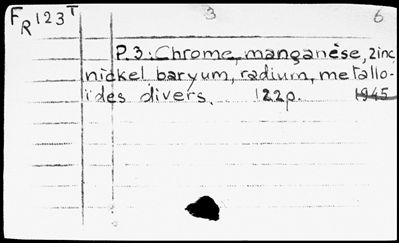 FR 123 T 3 6
P.3: Chrome, manganèse, zinc,
nickel baryum, radium, metallo-
ïdes divers. 122p. 1945